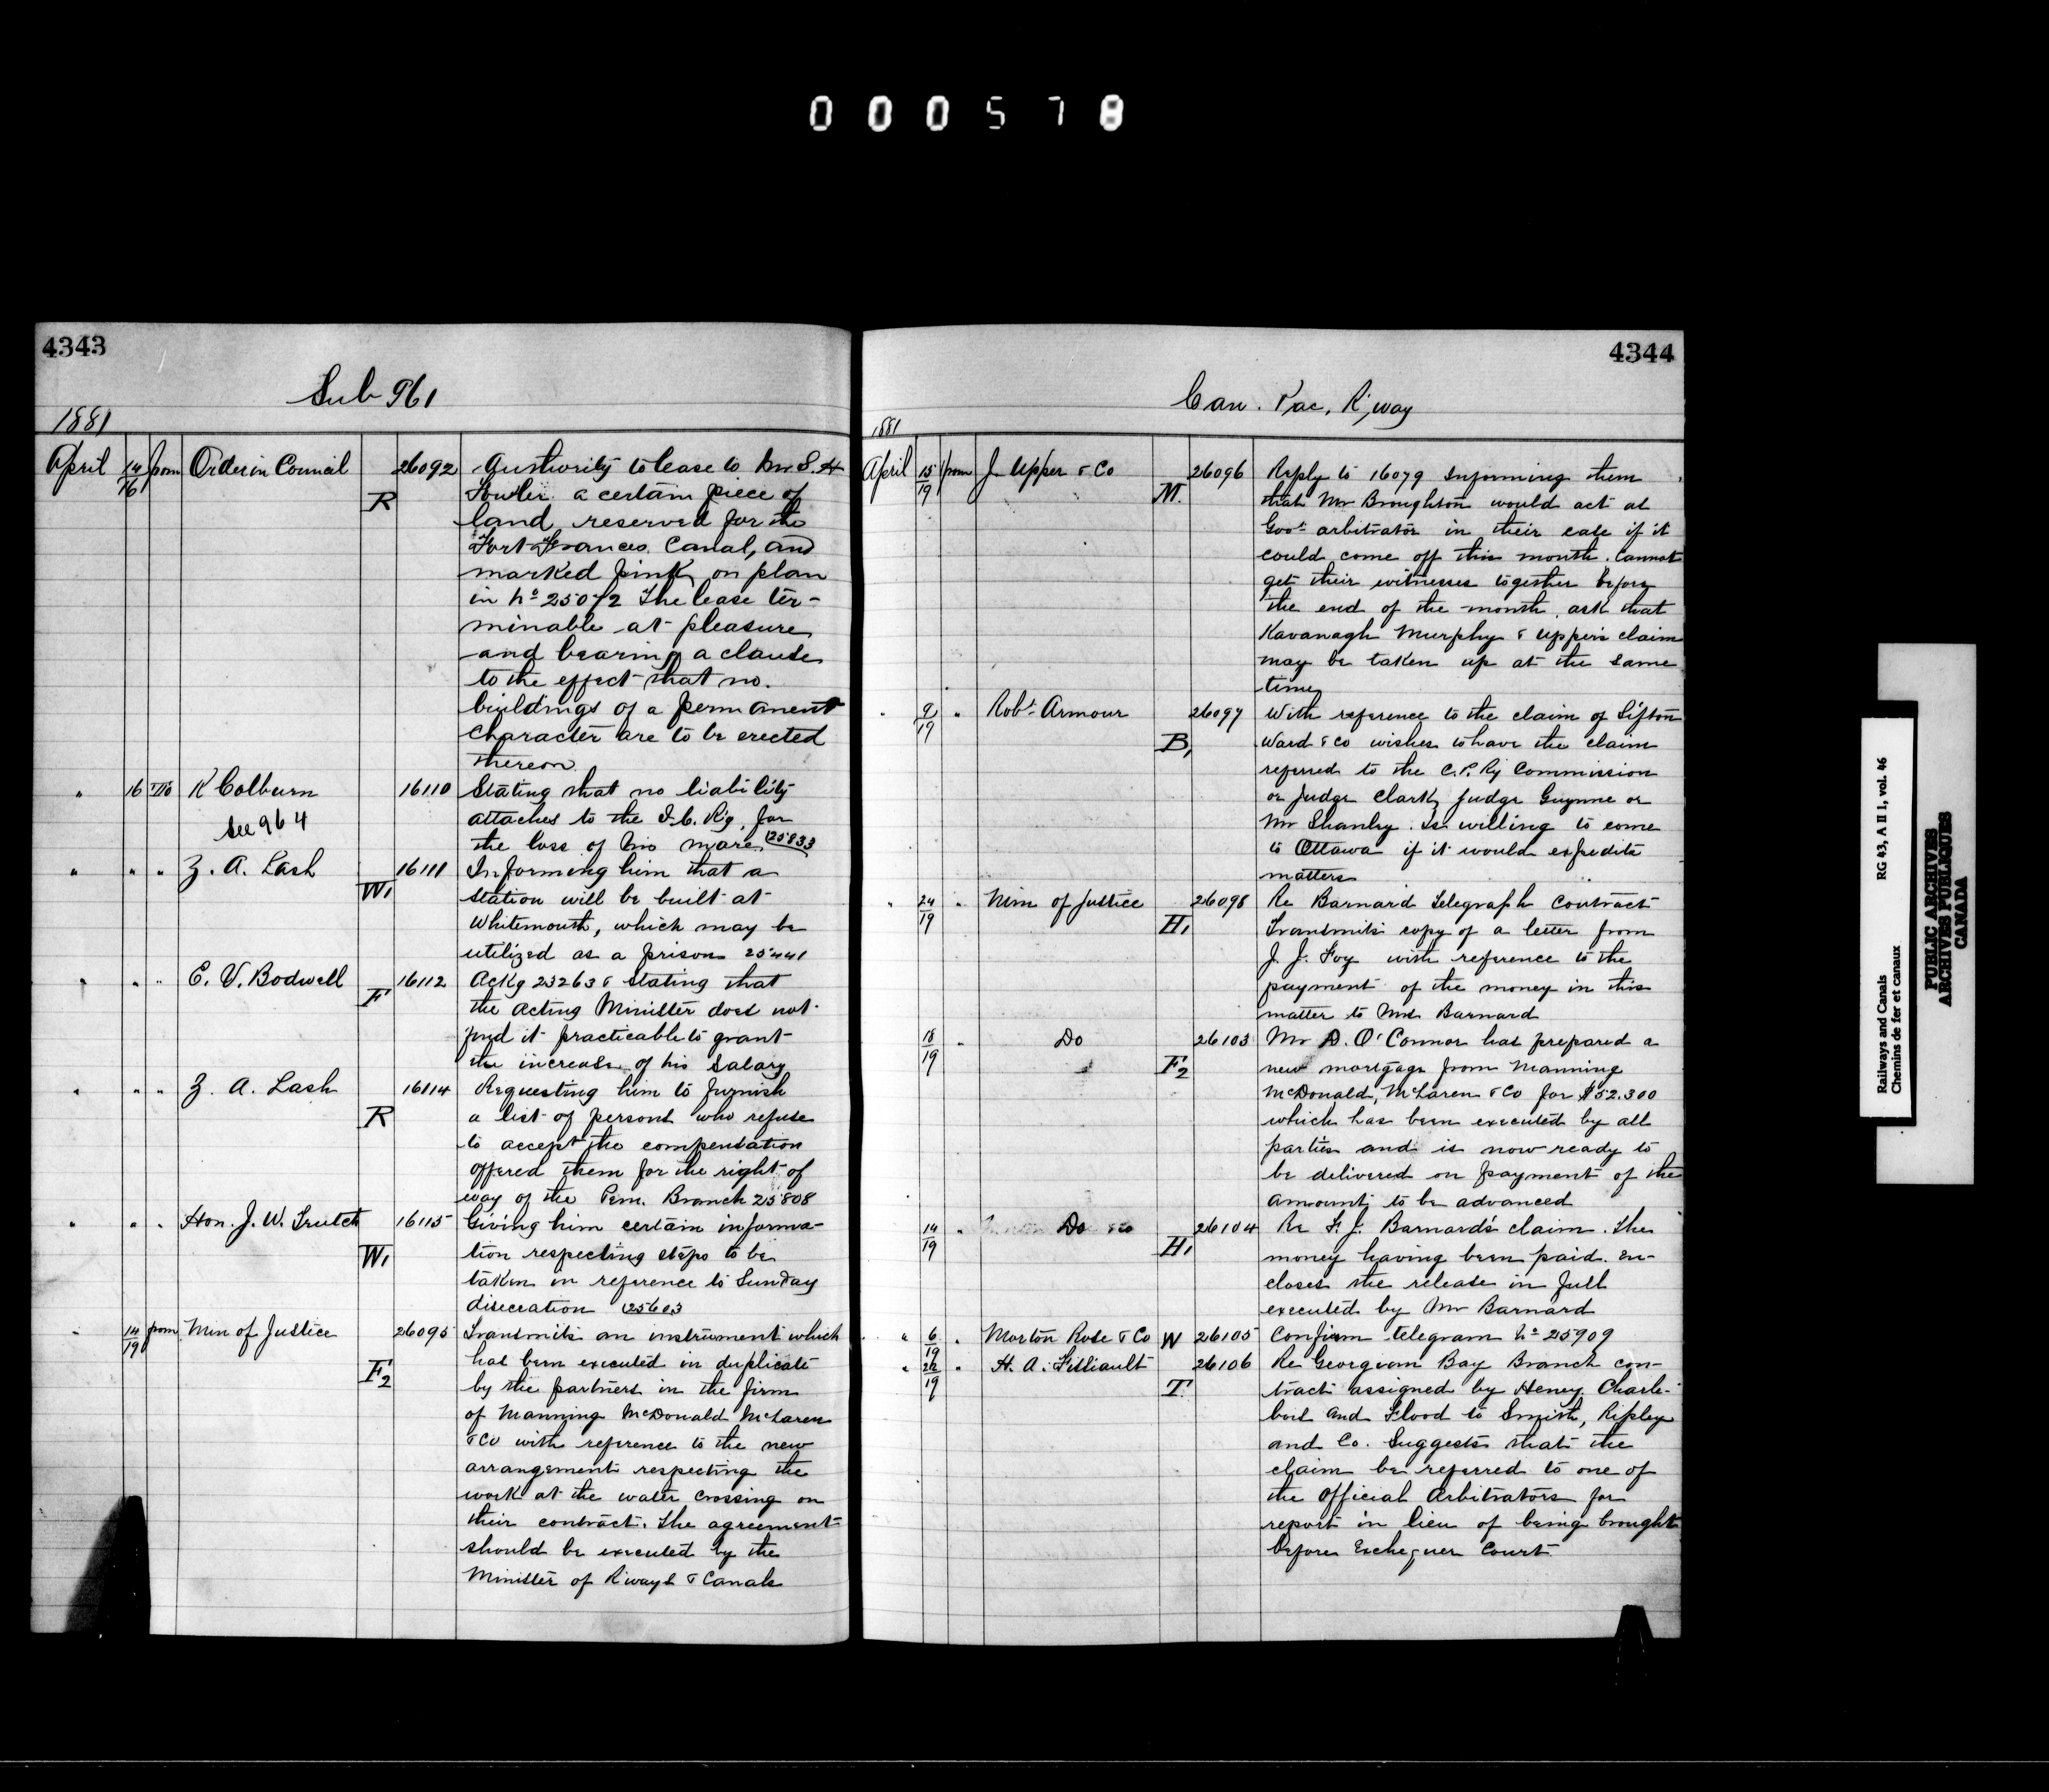 000578
4343
Sub 961
1881
April 14/16 from Order in Council R 26092 Authority to lease to Mr S. H
Fowler a certain piece of
land reserved for the
Fort Frances Canal, and
marked pink on plan
in No 25072 The lease ter-
minable at pleasure
and bearing a clause
to the effect that no
buildings of a permanent
character are to be erected
thereon.
" 16 To K Colburn 16110 Stating that no liability
See 964 attaches to the I.C. Ry. for
the loss of his mare. 25833
" " " Z. A. Lash W1 16111 Informing him that a
station will be built at
Whitemouth, which may be
utilized as a prison 25441
" " " E. V. Bodwell F 16112 Ackg 23263 & stating that
the Acting Minister does not
find it practicable to grant
the increase of his salary
" " " Z. A. Lash R 16114 Requesting him to furnish
a list of persons who refuse
to accept the compensation
offered them for the right of
way of the Pem. Branch 25808
" " " Hon. J. W. Trutch W1 16115 Giving him certain informa-
tion respecting steps to be
taken in reference to Sunday
disecration 25603
" 14/19 from Min of Justice F2 26095 Transmits an instrument which
has been executed in duplicate
by the partners in the firm
of Manning McDonald McLaren
& Co with reference to the new
arrangement respecting the
work at the water crossing on
their contract. The agreement
should be executed by the
Minister of R'ways & Canals
4344
Can. Pac. R'way
1881
April 15/19 from J. Upper & Co M. 26096 Reply to 16079 Informing them
that Mr Broughton would act as
Govt arbitrator in their case if it
could come off this month. Cannot
get their witnesses together before
the end of the month. ask that
Kavanagh Murphy & Upper's claim
may be taken up at the same
time
" 9/19 " Robt Armour B1 26097 With reference to the claim of Sifton
Ward & Co wishes to have the claim
referred to the C.P. Ry Commission
or Judge Clark, Judge Gwynne or
Mr Shanly. Is willing to come
to Ottawa if it would expedite
matters
" /19 " Min of Justice H1 26098 Re Barnard Telegraph Contract
Transmits copy of a letter from
J. J. Foy with reference to the
payment of the money in this
matter to Barnard
18/19 " Do F2 26103 Mr D. O'Connor has prepared a
new mortgage from Manning
McDonald, McLaren & Co for $52.300
which has been executed by all
parties and is now ready to
be delivered on payment of the
amount to be advanced
14/19 " Do H1 26104 Re F. J. Barnard's claim. The
money having been paid. En-
closes the release in full
executed by Mr Barnard
" 6/19 " Morton Rose & Co W 26105 Confirm telegram No 25909
" /19 " H. A. T. 26106 Re Georgian Bay Branch con-
tract assigned by Heney, Charle-
bois and Flood to Smith, Ripley
and Co. Suggests that the
claim be referred to one of
the Official Arbitrators for
report in lieu of being brought
before Exchequer Court
Railways and Canals RG 43, A II 1, vol. 46
Chemins de fer et canaux
PUBLIC ARCHIVES
ARCHIVES PUBLIQUES
CANADA